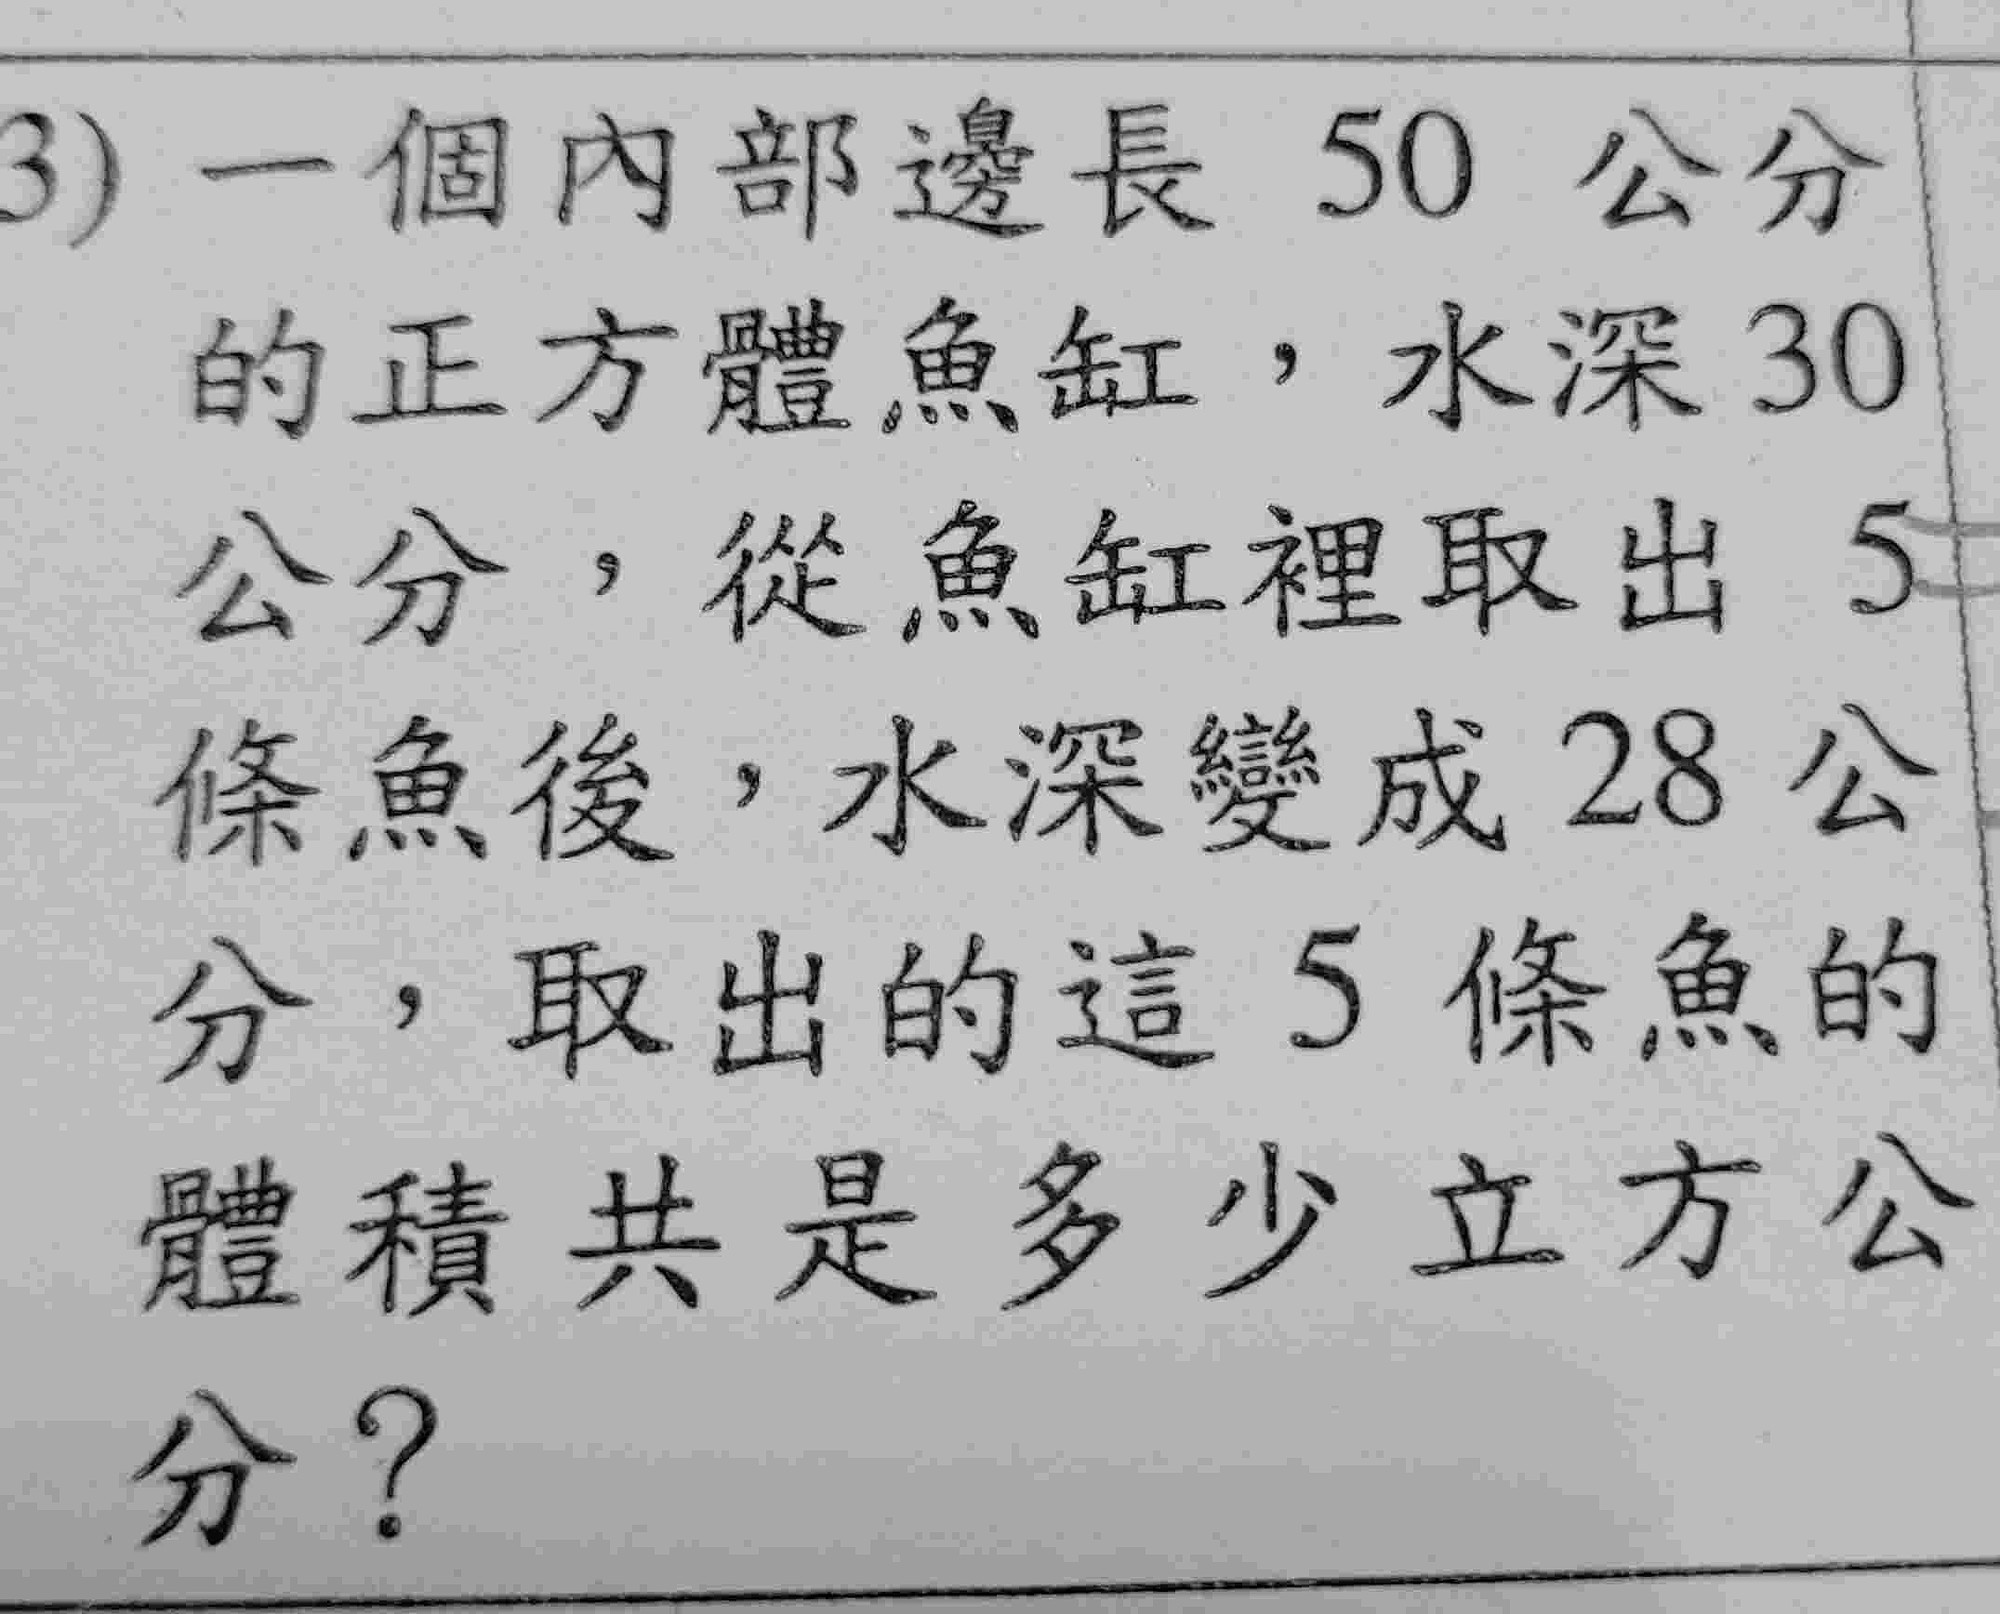 3) 一個內部邊長 50 公分
的正方體魚缸，水深 30
公分，從魚缸裡取出 5
條魚後，水深變成 28 公
分，取出的這 5 條魚的
體積共是多少立方公
分？